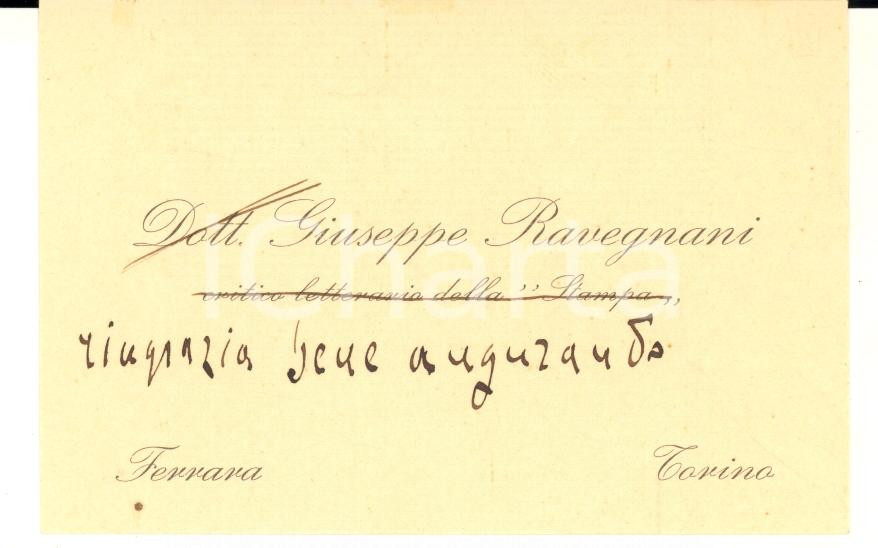 Dott. Giuseppe Ravegnani
critico letterario della "Stampa„
ringrazia bene augurando
Ferrara Torino
iCharta